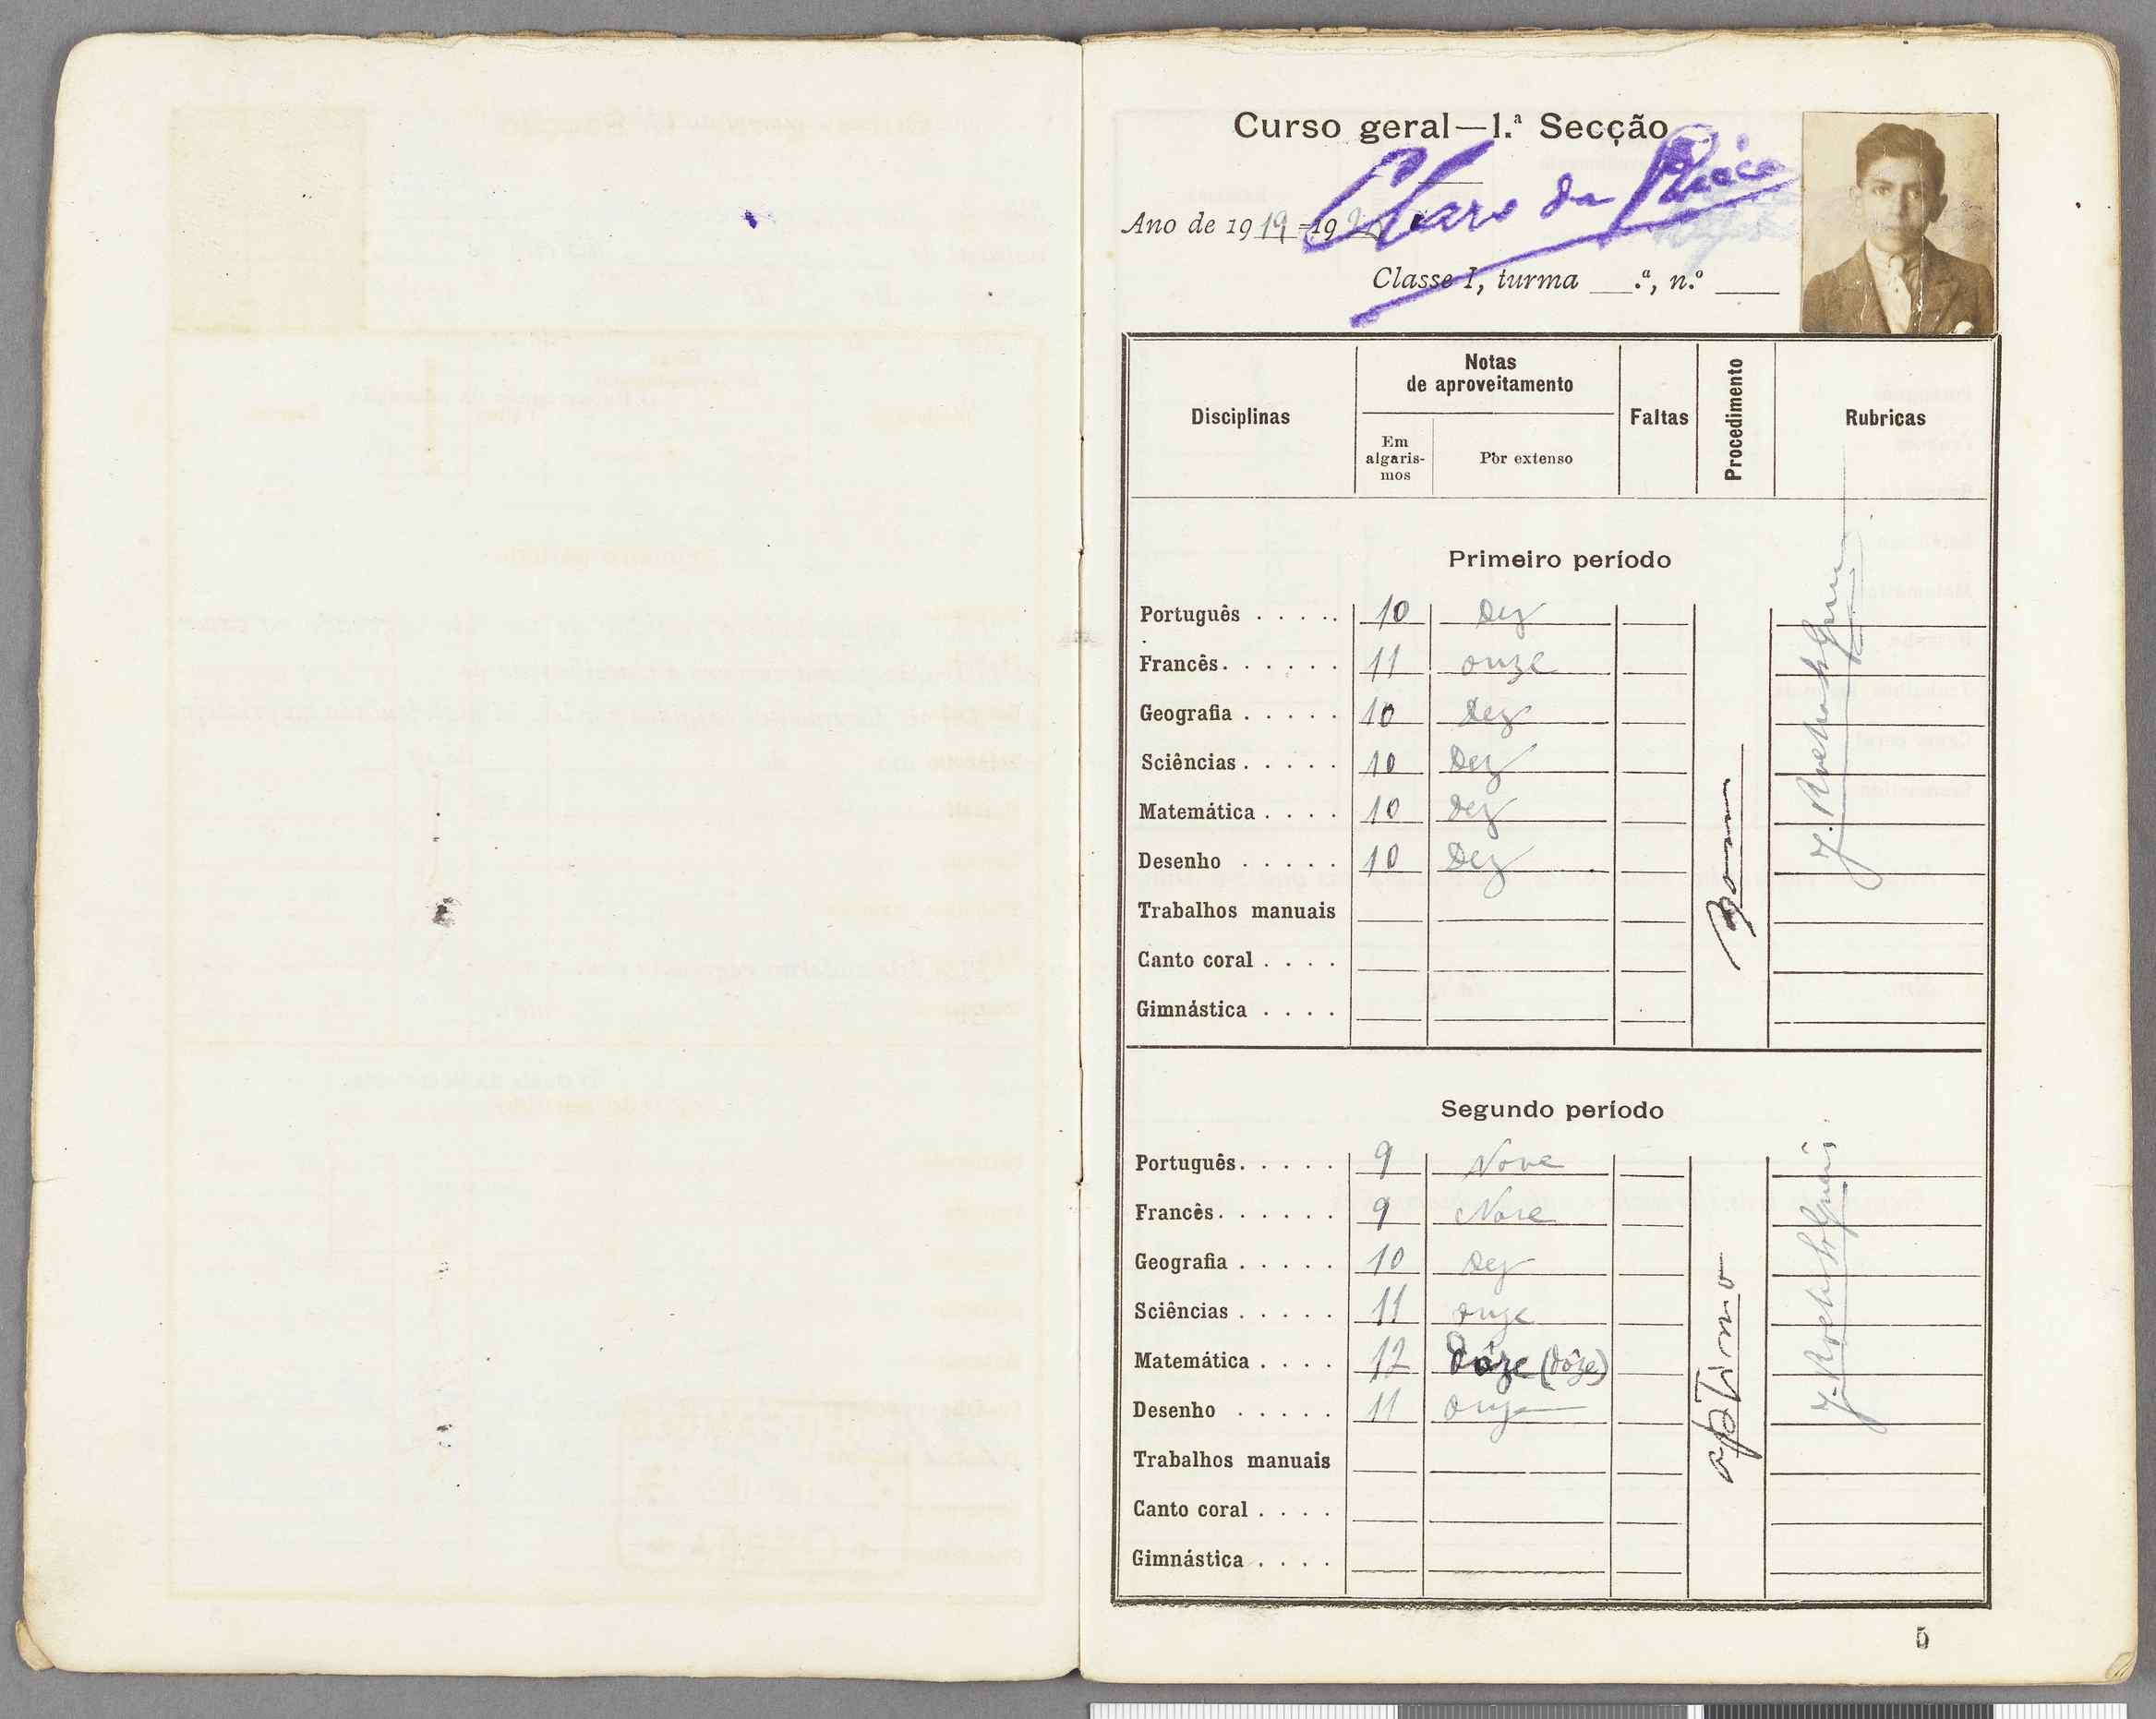 Curso geral—1.ª Secção
Claro da
Ano de 1919=19
Classe I, turma ___.ª, n.º ____
Disciplinas
Notas de aproveitamento
Em algaris-mos
Por extenso
Faltas
Procedimento
Rubricas
Primeiro período
Português . . . . . 10 Dez
Francês. . . . . . 11 onze
Geografia . . . . . 10 Dez
Sciências . . . . . 10 Dez
Matemática . . . . 10 Dez
Desenho . . . . . 10 Dez
Trabalhos manuais
Canto coral . . . .
Gimnástica . . . .
Bom
Segundo período
Português. . . . . 9 Nove
Francês. . . . . . 9 Nove
Geografia . . . . . 10 Dez
Sciências . . . . . 11 onze
Matemática . . . . 12 Dôze (Dôze)
Desenho . . . . . 11 onze
Trabalhos manuais
Canto coral . . . .
Gimnástica . . . .
optimo
5